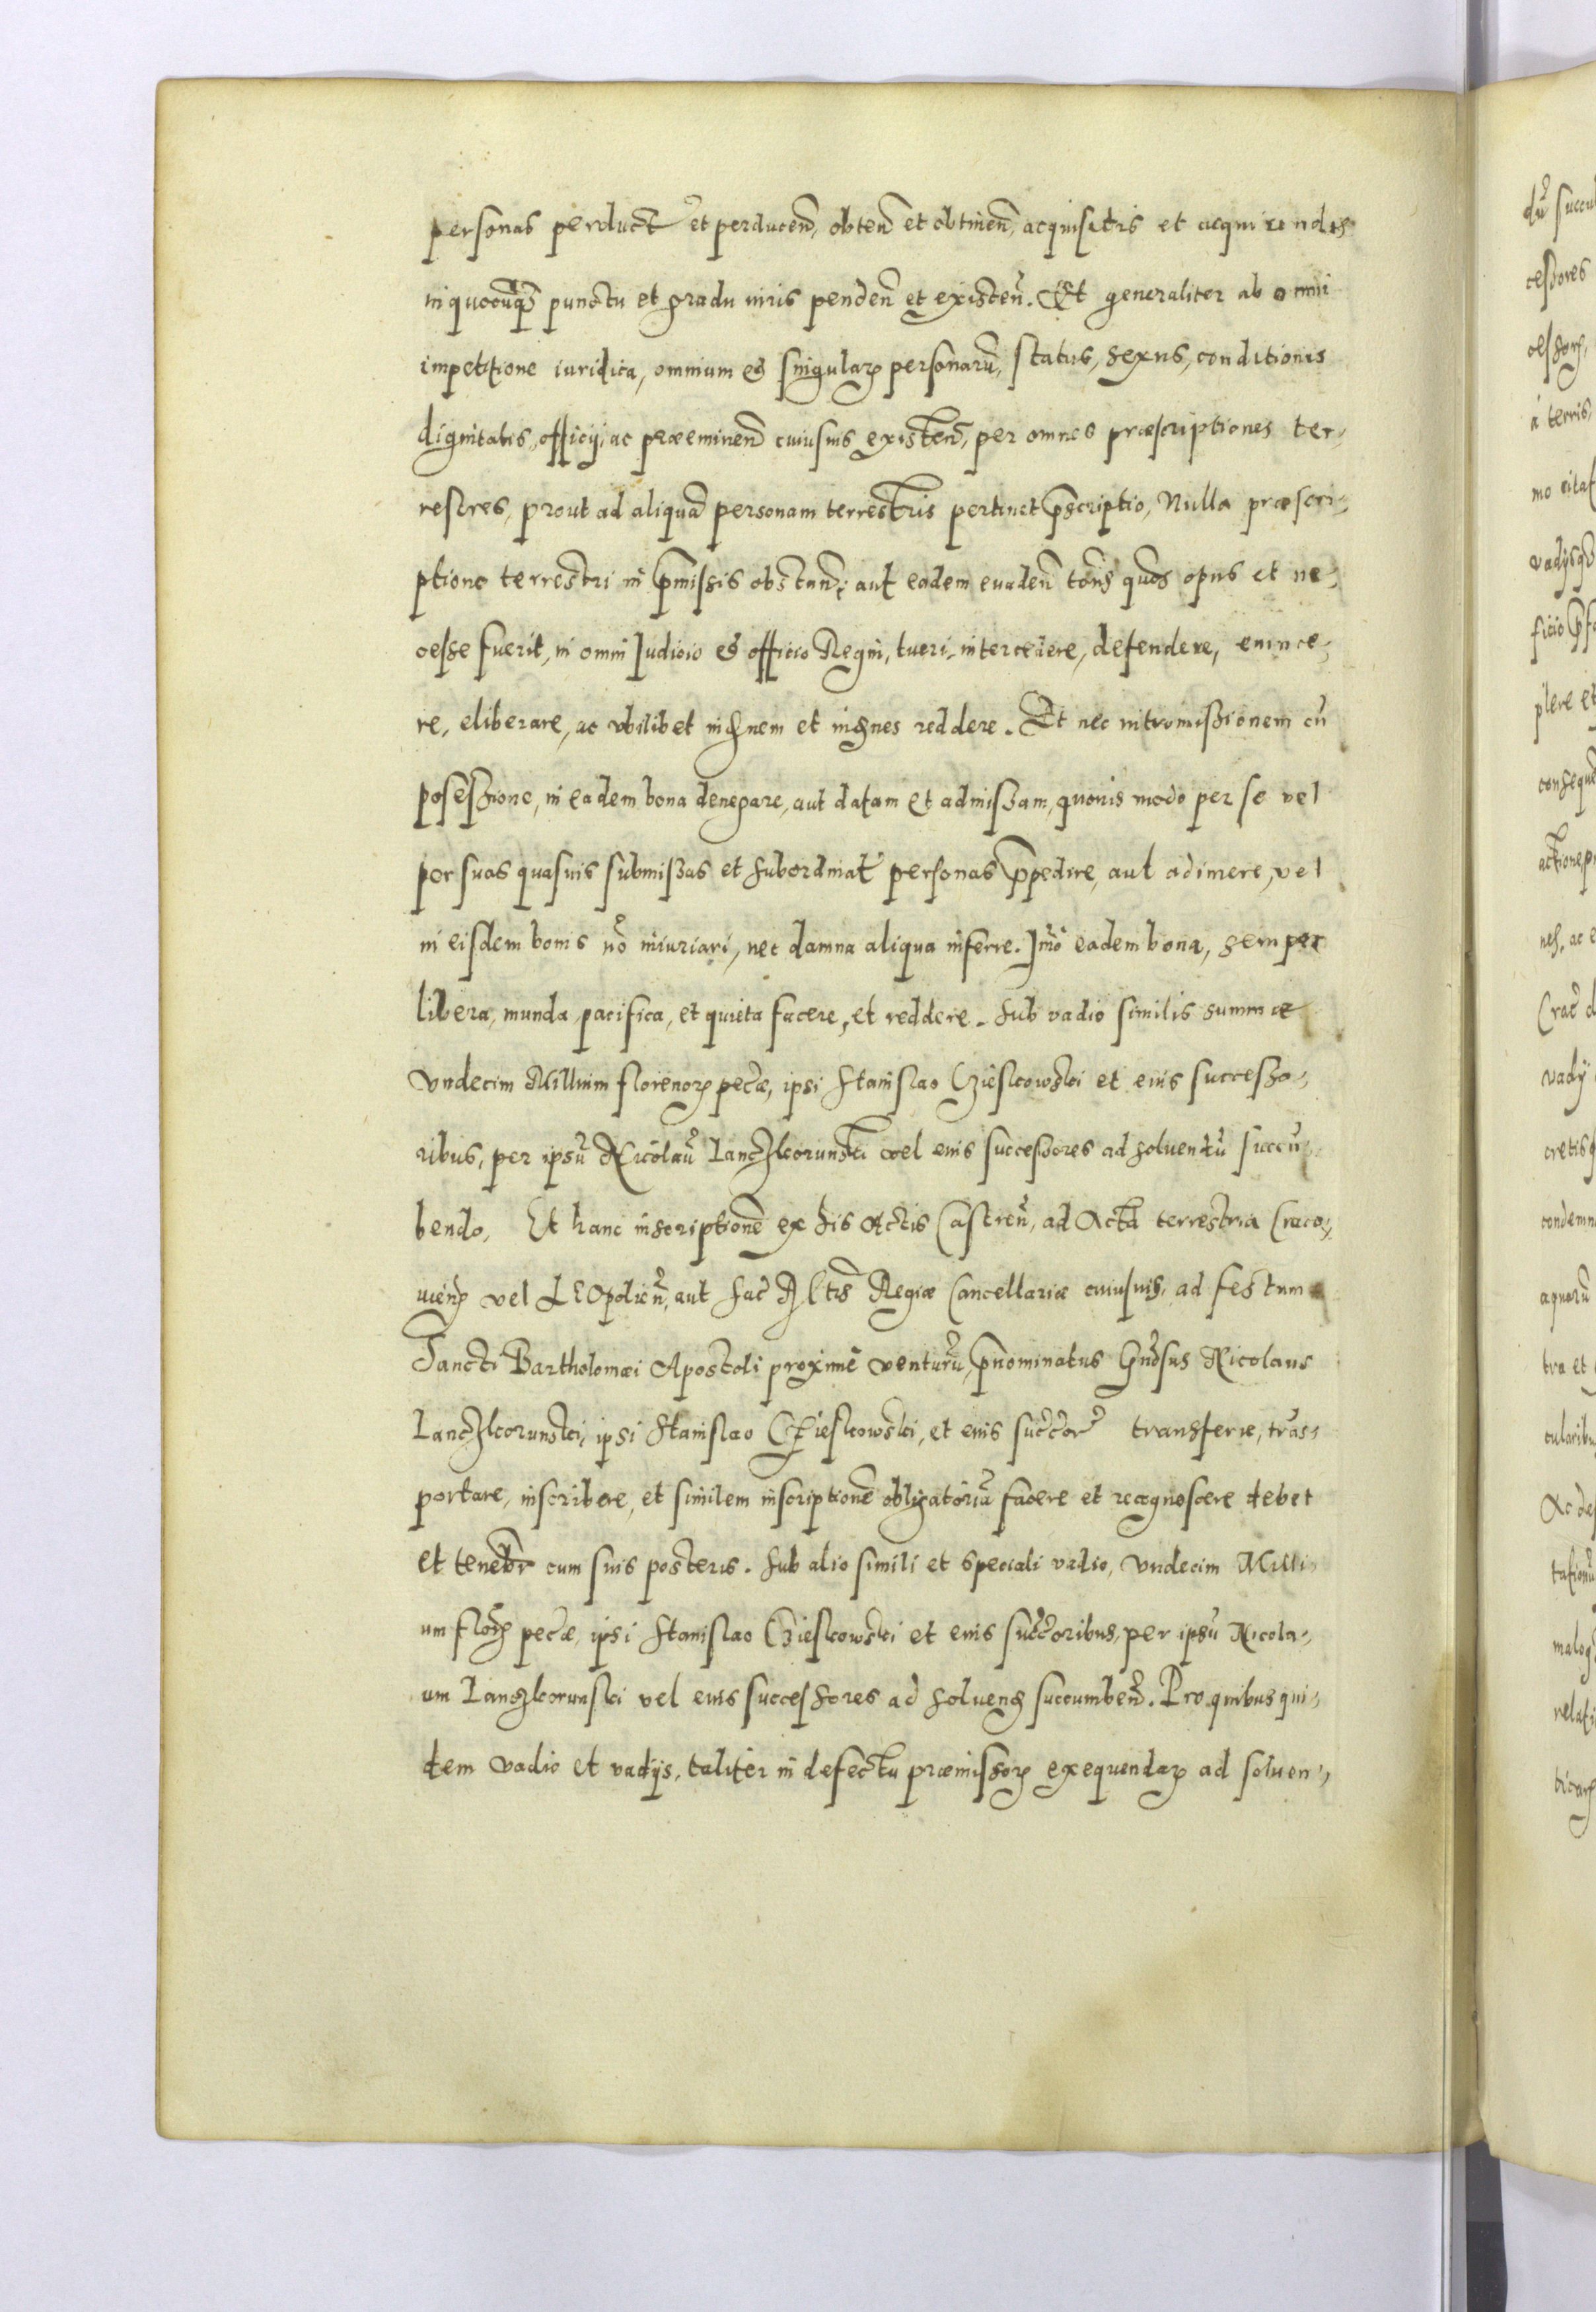 personas perduct et perducen, obten et obtinen, acquisitis et acquirendis
in quocūq punctu et gradu iuris penden et existen. Et generaliter ab omni
impetitione iuridica, omnium et singular personarū, status, sexus, conditionis
dignitatis, officij, ac præeminen cuiusuis existen, per omnes præscriptiones ter,
restres, prout ad aliquā personam terrestris pertinet pscriptio, Nulla præscri,
ptione terrestri in pmissis obstan, aut eadem euaden tons quos opus et ne,
cesse fuerit, in omni Judicio et officio Regni, tueri, intercedere, defendere, euince,
re, eliberare, ac vbilibet indnem et indnes reddere. Et nec intromissionem cū
posessione, in eadem bona denegare, aut datam et admissam, quouis modo per se vel
per suas quasuis submissas et subordinat personas ppedire, aut adimere, vel
in eisdem bonis nō iniuriari, nec damna aliqua inferre. Imō eadem bona, semper
libera, munda, pacifica, et quieta facere, et reddere. Sub vadio similis summæ
Vndecim Millium florenor pecæ, ipsi Stanislao Czieslkowski et eius successo,
ribus, per ipsū Nicolaū Lanczkorunski vel eius successores ad soluendū succū,
bendo. Et hanc inscriptionē ex his Actis Castren, ad Acta terrestria Craco,
uien vel LEOpolien, aut Sac Mtis Regiæ Cancellariæ cuiusuis, ad festum
Sancti Bartholomæi Apostoli proximē venturū, pnominatus Gnosus Nicolaus
Lanczkorunski, ipsi Stanislao Czieslkowski, et eius succor transferre, trās,
portare, inscribere, et similem inscriptionē obligatoriā facere et recognoscere debet
et tenebr cum suis posteris. Sub alio simili et speciali vadio, Vndecim Milli,
um flor pecæ, ipsi Stanislao Czieslkowski et eius succoribus, per ipsū Nicola,
um Lanczkorunski vel eius successores ad soluend succumben. Pro quibus qui,
dem vadio et vadijs, taliter in defectu præmissor exequendar ad soluen,